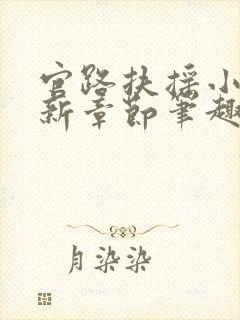 官路扶摇小
新章节笔趣
月染染